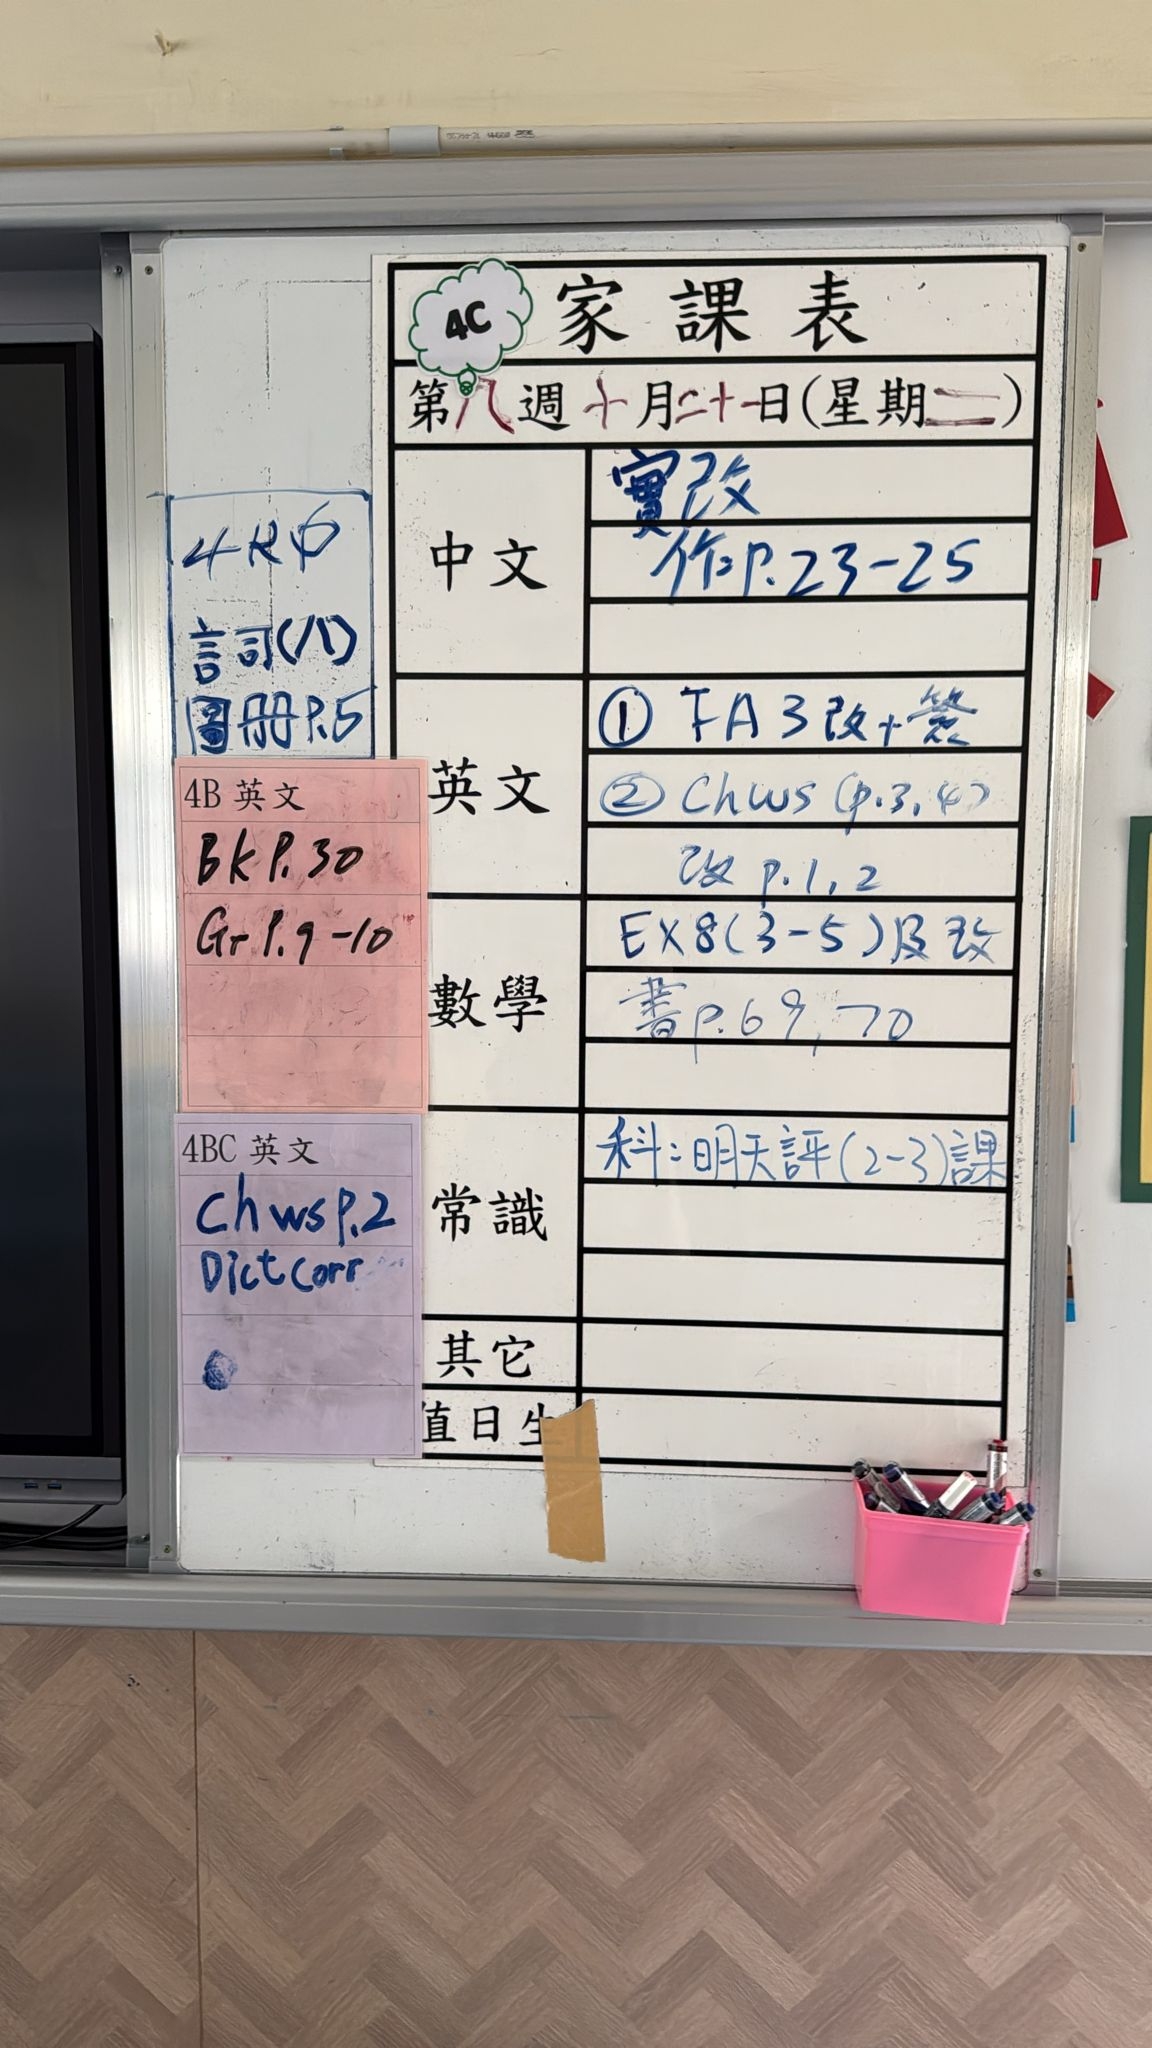 4C 家課表
第八週十月二十一日(星期二)
中文
實改
作=P.23-25
英文
① FA 3 改+簽
② Chws (p.3,4)
改 p.1,2
數學
EX8(3-5)及改
書p.69,70
常識
科:明天評(2-3)課
其它
值日生
4R中
言司(八)
圖冊P.5
4B 英文
Bk P.30
Gr P.9-10
4BC 英文
Chws P.2
Dict corr